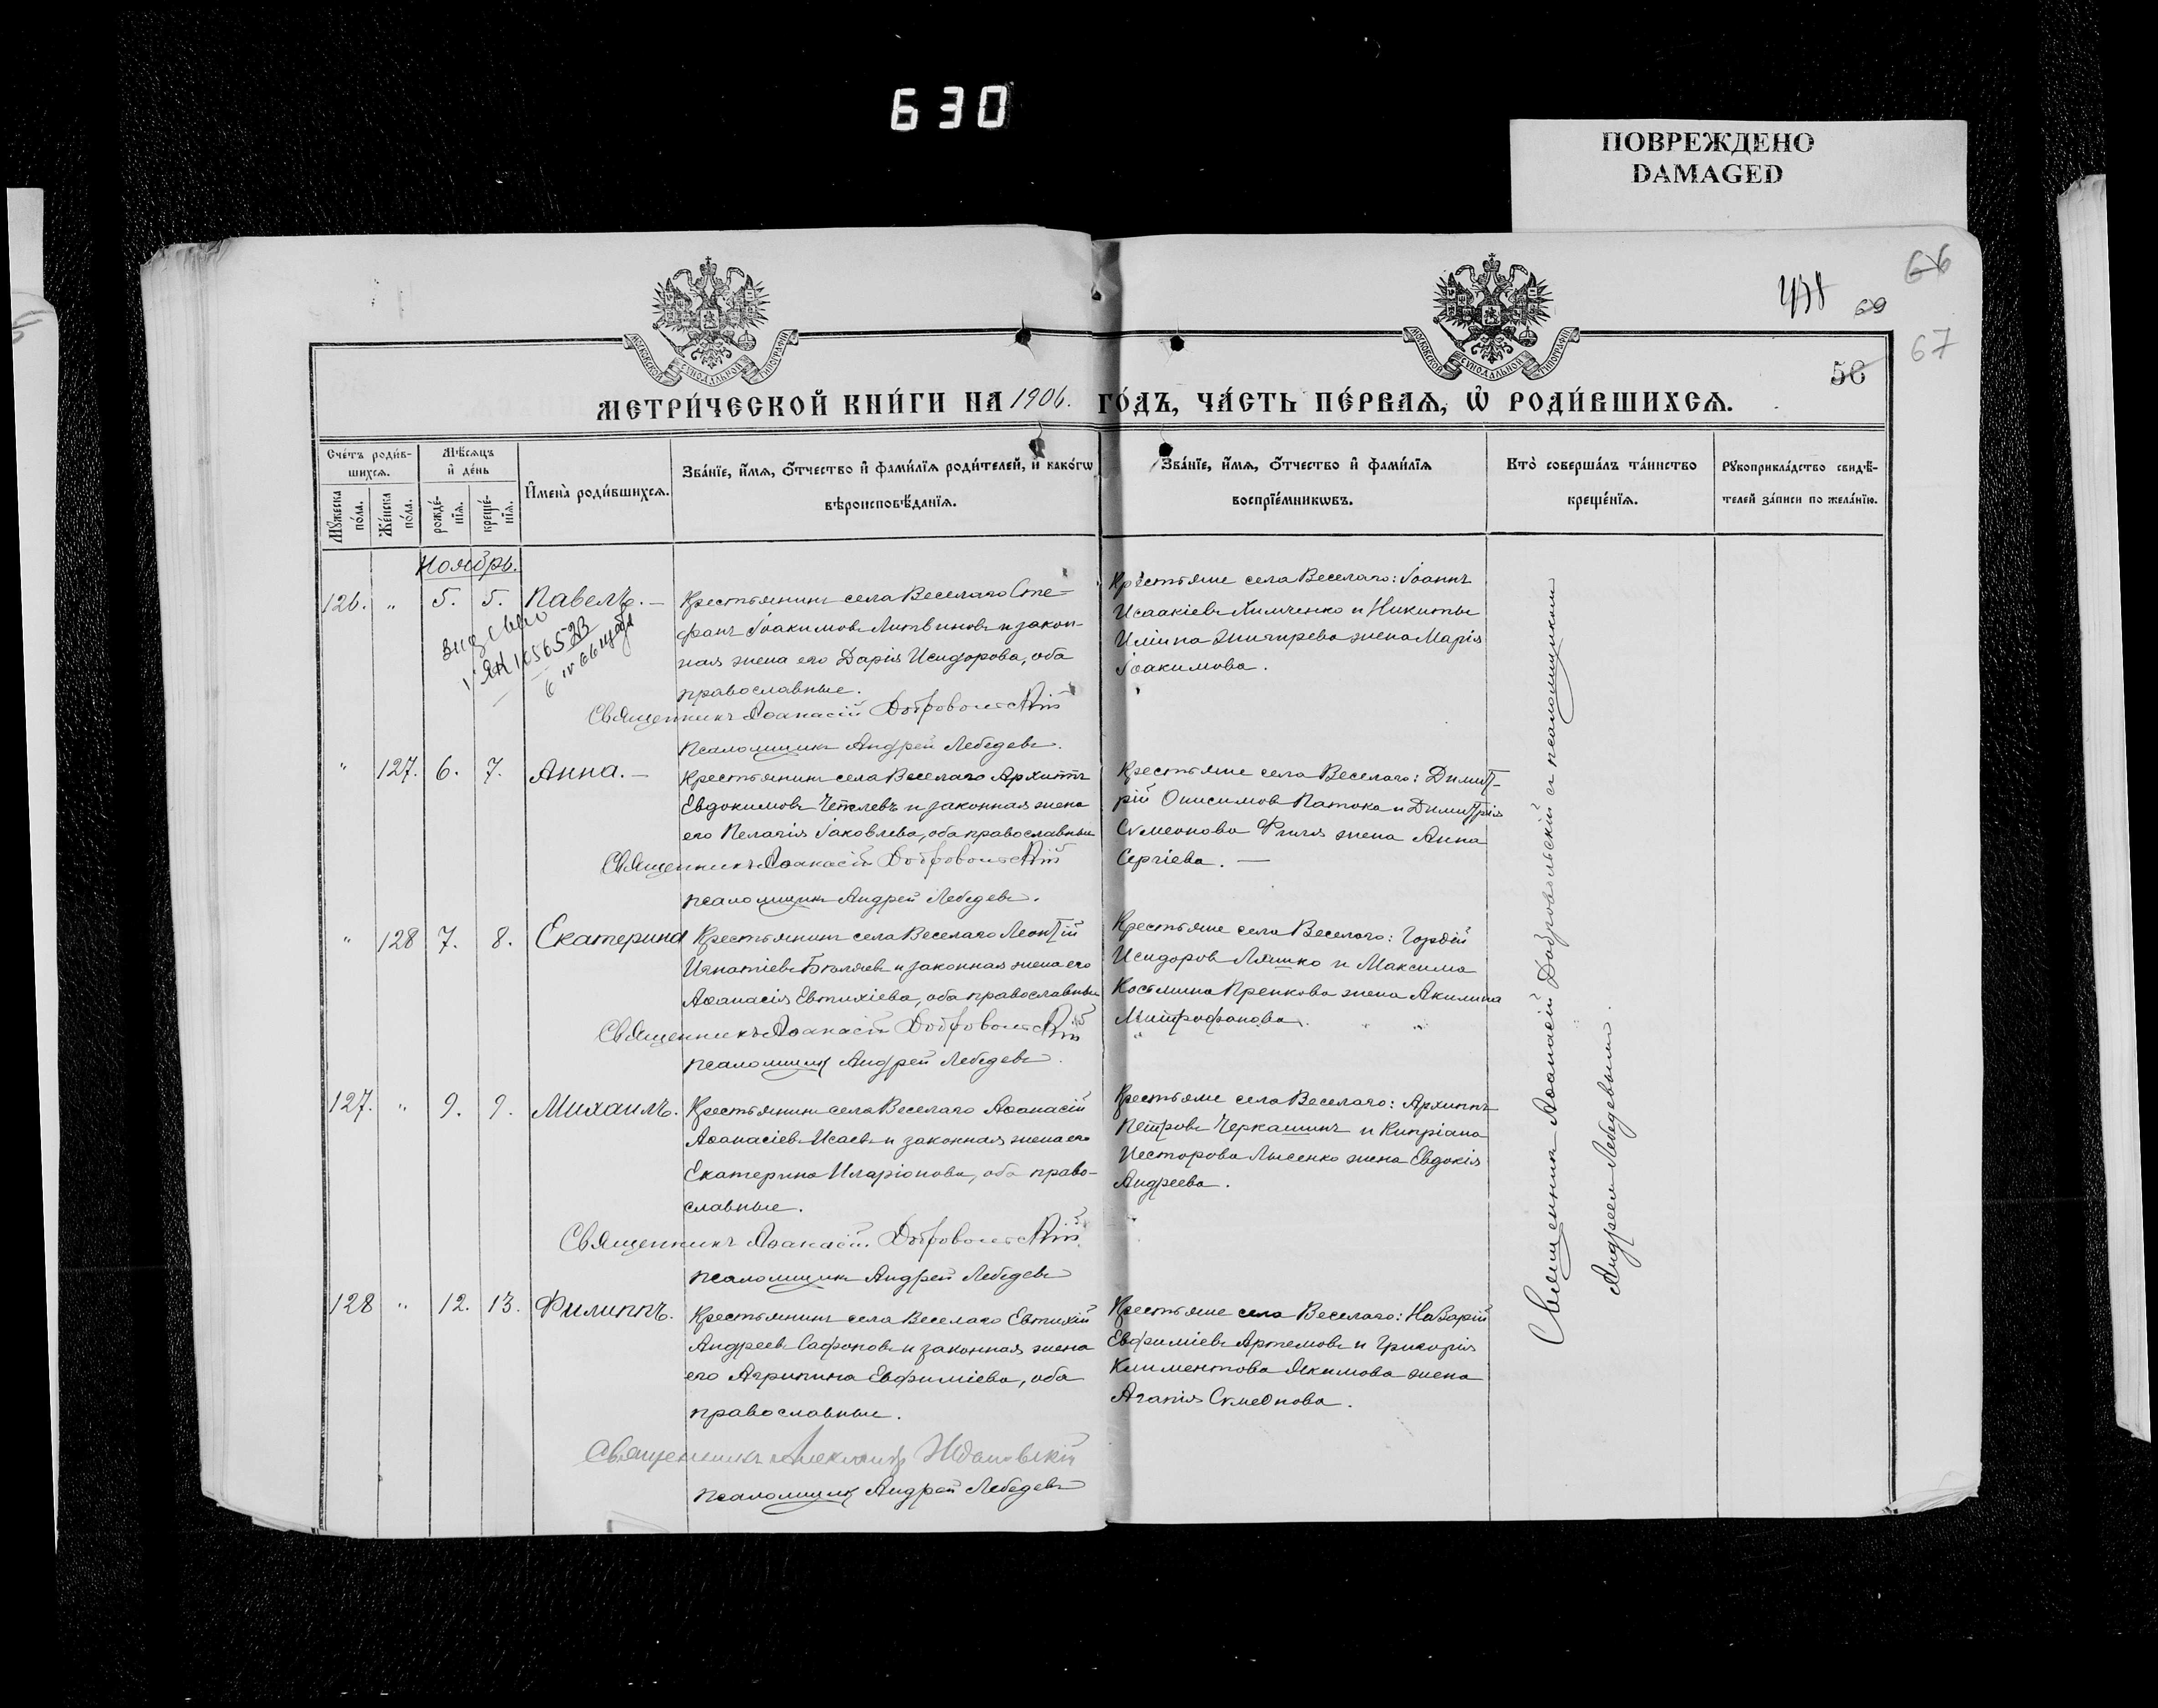 630
ПОВРЕЖДЕНО
DAMAGED
66
69
67
56
МОСКОВСКОЙ СѴНОДАЛЬНОЙ ТИПОГРАФІИ
МОСКОВСКОЙ СѴНОДАЛЬНОЙ ТИПОГРАФІИ
МЕТРИ́ЧЕСКОЙ КНИ́ГИ НА 1906. ГО́ДЪ, ЧА́СТЬ ПЕ́РВАЯ, Ѡ҆ РОДИ́ВШИХСЯ.
Сче́тъ роди́в-
шихся.
Мѣ́сяцъ
и҆ де́нь
Мꙋ́жеска
по́ла.
Же́нска
по́ла.
рожде́-
нїя.
креще́-
нїя.
И҆мена̀ роди́вшихся.
Зва́нїе, и҆́мя, ѻ҆́тчество и҆ фами́лїя роди́телей, и҆ како́гѡ
вѣроисповѣ́данїя.
Зва́нїе, и҆́мя, ѻ҆́тчество и҆ фами́лїя
воспрїе́мникѡвъ.
Кто̀ соверша́лъ та́инство
креще́нїя.
Рꙋкоприкла́дство свидѣ́-
телей за́писи по жела́нїю.
Ноябрь.
126. „ 5. 5. Павелъ. —
Крестьянинъ села Веселаго Сте=
фанъ Іоакимовъ Литвиновъ и закон-
ная жена его Дарія Исидорова, оба
православные.
Священникъ Аѳанасій Добровольскій
Псаломщикъ Андрей Лебедевъ.
Крестьяне села Веселаго: Іоаннъ
Исаакіевъ Климченко и Никиты
Иліина жена Марія
Іоакимова.
„ 127. 6. 7. Анна. —
Крестьянинъ села Веселаго Архиппъ
Евдокимовъ и законная жена
его Пелагія Іаковлева, оба православные
Священникъ Аѳанасій Добровольскій
псаломщикъ Андрей Лебедевъ.
Крестьяне села Веселаго: Димит-
рій Онисимовъ Патока и Димитрія
Сѵмеонова жена Анна
Сергіева. —
„ 128 7. 8. Екатерина
Крестьянинъ села Веселаго Леонтій
Игнатіевъ Бѣляевъ и законная жена его
Аѳанасія Евтихіева, оба православные
Священникъ Аѳанасій Добровольскій
псаломщикъ Андрей Лебедевъ.
Крестьяне села Веселаго: Гордій
Исидоровъ Ляшко и Максима
жена Акилина
Митрофанова.
127. „ 9. 9. Михаилъ.
Крестьянинъ села Веселаго Аѳанасій
Аѳанасіевъ Исаевъ и законная жена его
Екатерина Иларіонова, оба право-
славные.
Священникъ Аѳанасій Добровольскій
псаломщикъ Андрей Лебедевъ
Крестьяне села Веселаго: Архиппъ
Петровъ Черкашинъ и Кипріана
Несторова Лысенко жена Евдокія
Андреева.
128 „ 12. 13. Филиппъ.
Крестьянинъ села Веселаго Евтихій
Андреевъ Сафоновъ и законная жена
его Агрипина Евфиміева, оба
православные.
Священникъ Александръ Ждановскій
псаломщикъ Андрей Лебедевъ
Крестьяне села Веселаго: Назарій
Евфиміевъ Артемовъ и Григорія
Климентова Якимова жена
Агапія Сѵмеонова.
Священникъ Аѳанасій Добровольскій съ псаломщикомъ
Андреемъ Лебедевымъ.